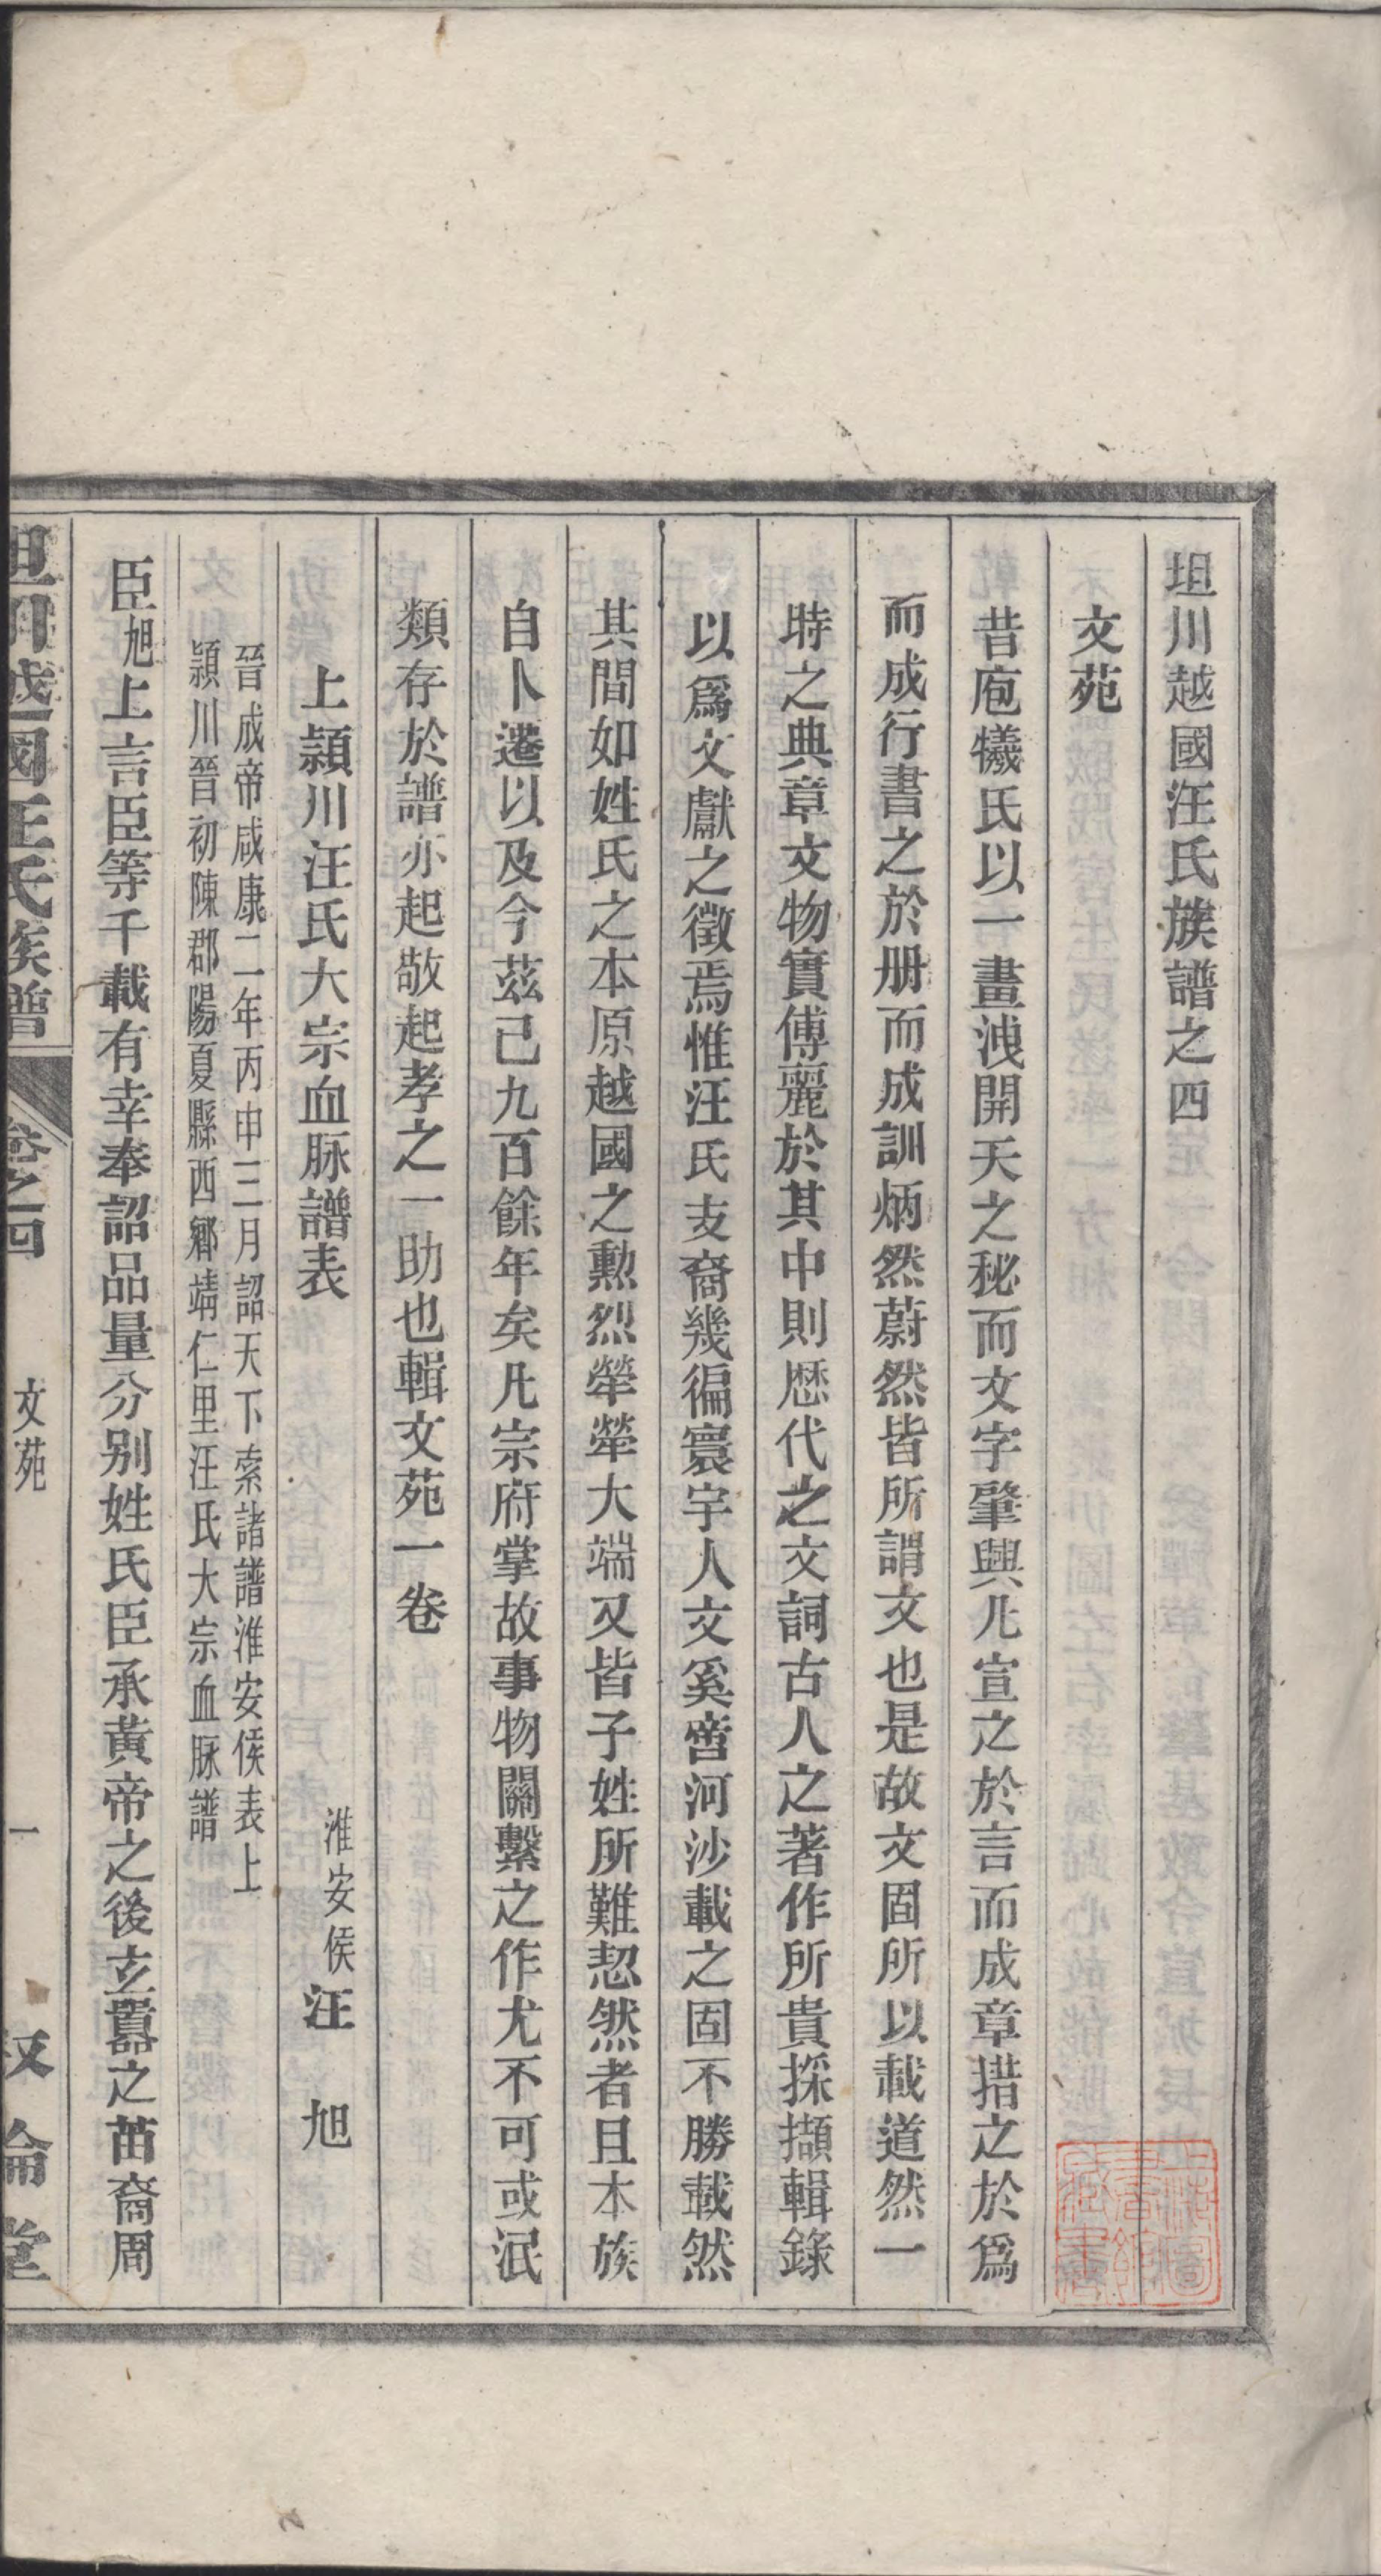 坦川越國汪氏族譜之四
文苑
昔庖犧氏以一畫洩開天之秘而文字肇興凡宣之於言而成章措之於爲
而成行書之於册而成訓炳然蔚然皆所謂文也是故文固所以載道然一
時之典章文物實傅麗於其中則歷代之文詞古人之著作所貴採擷輯錄
以爲文獻之徵焉惟汪氏支裔幾徧寰宇人文奚啻河沙載之固不勝載然
其間如姓氏之本原越國之勲烈犖犖大端又皆子姓所難恝然者且本族
自卜遷以及今茲已九百餘年矣凡宗府掌故事物關繫之作尤不可或泯
類存於譜亦起敬起孝之一助也輯文苑一卷
上頴川汪氏大宗血脉譜表
淮安侯汪　旭
晉成帝咸康二年丙申三月詔天下索諸譜淮安侯表上
頴川晉初陳郡陽夏縣西鄉靖仁里汪氏大宗血脉譜
臣旭上言臣等千載有幸奉詔品量分别姓氏臣承黃帝之後玄囂之苗裔周
坦川越國汪氏族譜
卷之四
文苑
一
叙倫堂